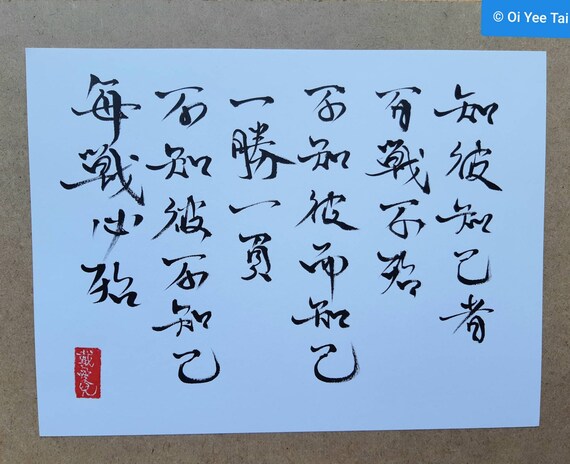 知彼知己者
百戰不殆
不知彼而知己
一勝一負
不知彼不知己
每戰必殆
© Oi Yee Tai